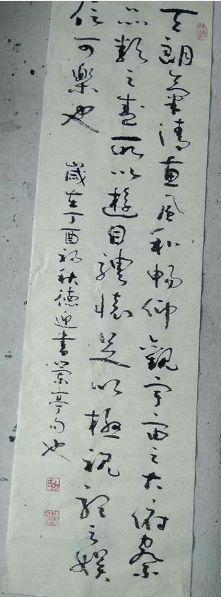 天朗氣清惠風和暢仰觀宇宙之大俯察
品類之盛所以遊目騁懷足以極視聽之娛
信可樂也 歲在丁酉初秋德迎書蘭亭句也